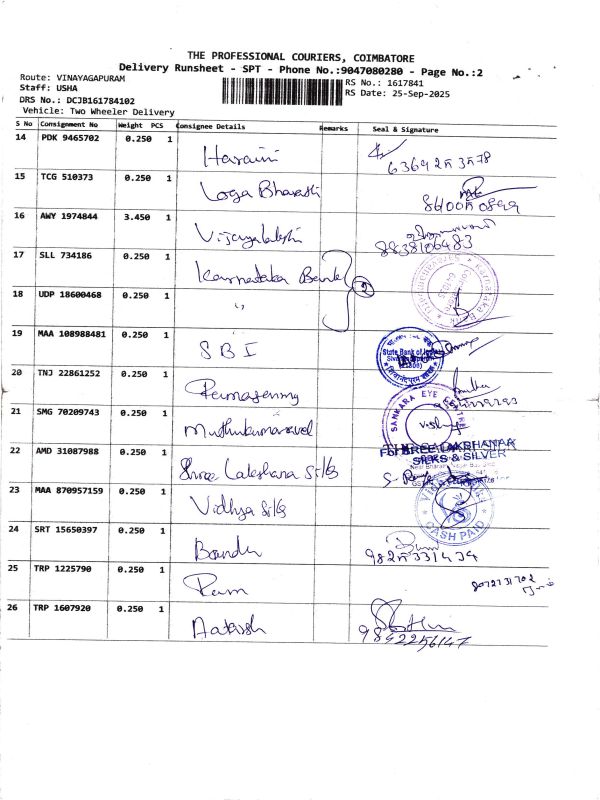 THE PROFESSIONAL COURIERS, COIMBATORE
Delivery Runsheet - SPT - Phone No.:9047080280 - Page No.:2
Route: VINAYAGAPURAM
RS No.: 1617841
Staff: USHA
RS Date: 25-Sep-2025
DRS No.: DCJB161784102
Vehicle: Two Wheeler Delivery
S No Consignment No Weight PCS Consignee Details Remarks Seal & Signature
14 PDK 9465702 0.250 1 Haraini
15 TCG 510373 0.250 1 Loga Bharathi
16 AWY 1974844 3.450 1 Vijayalakshi 8838106483
17 SLL 734186 0.250 1 Karnataka Bank 2
18 UDP 18600468 0.250 1 "
19 MAA 108988481 0.250 1 SBI State Bank of India
20 TNJ 22861252 0.250 1 Ramasamy
21 SMG 70209743 0.250 1 Muthukumaravel SANKARA EYE CENTRE
22 AMD 31087988 0.250 1 Shree Lakshana Silks For SHREE LAKSHANAA
SILKS & SILVER
23 MAA 870957159 0.250 1 Vidhya Silks CASH PAID
24 SRT 15650397 0.250 1
25 TRP 1225790 0.250 1 Ram 8072731702
26 TRP 1607920 0.250 1 Aakash 9842256147